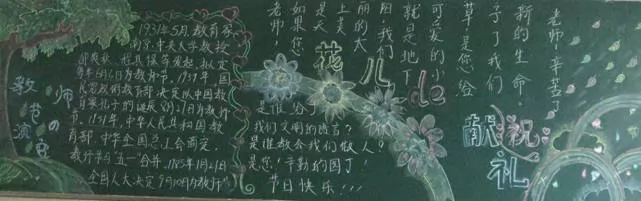 1931年5月,教育家
南京中央大学教授
邰爽秋、程其保等发起,拟定
每年的6月6日为教师节,1939年国
教育部决定以中国教
育家孔子的诞辰8月27日为教师
节。1951年,中华人民共和国教
育部、中华全国总工会商定,
教师节与五一合并,1985年1月21日
全国人大决定9月10日为教师
老师!
如果您
是天
上美
丽的太
阳,我们
就是地下
可爱的小
草是您给
予了我们
新的生命!
老师,辛苦了
花儿de
祝
献礼
是谁给了
我们文明的语言?
是谁教会我们做人?
是您!辛勤的园丁!
节日快乐!!!